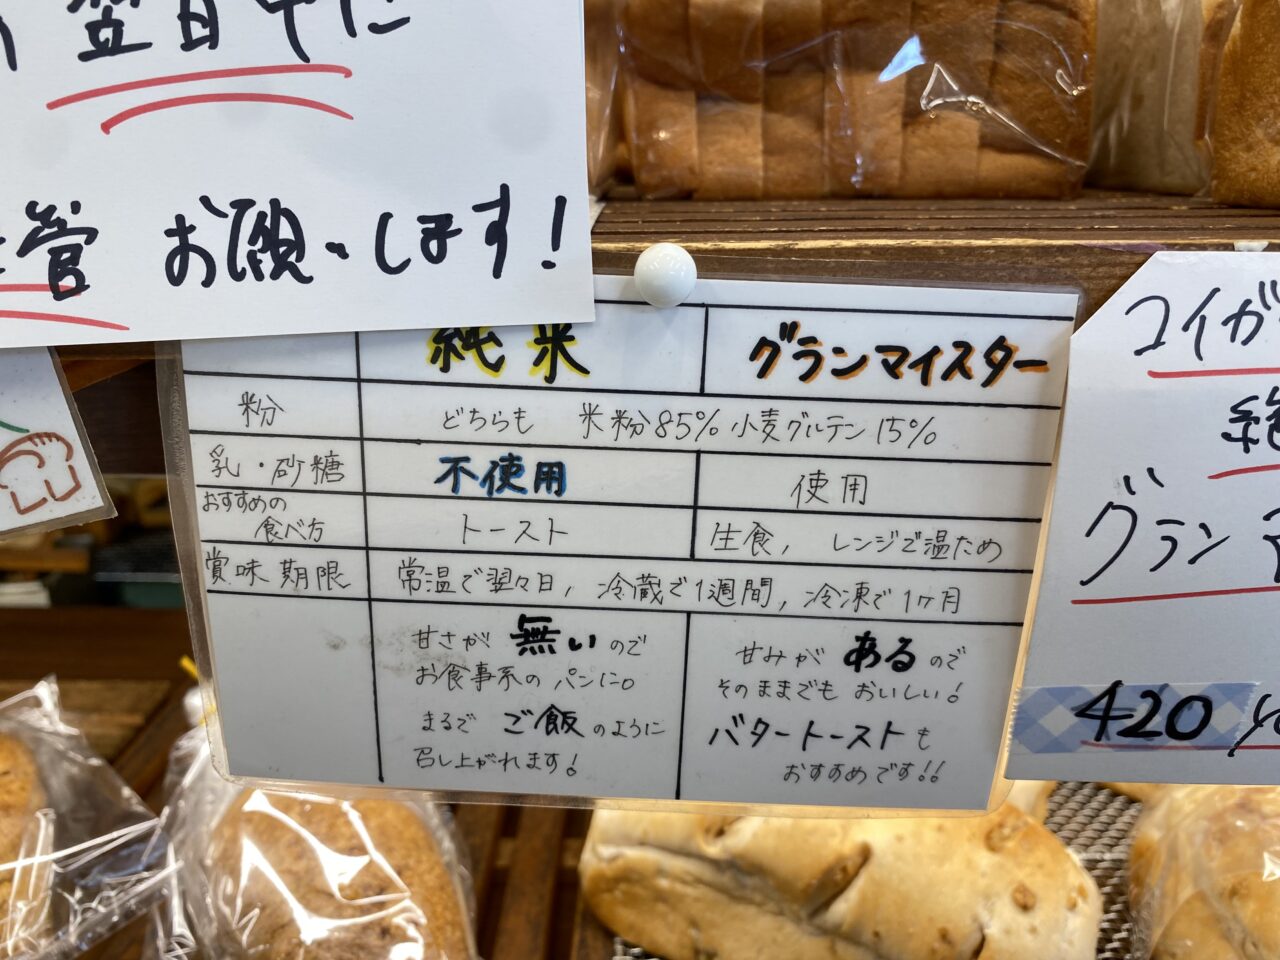 翌日中に
管 お願いします!
純米 グランマイスター
粉 どちらも 米粉85% 小麦グルテン15%
乳・砂糖 不使用 使用
おすすめの
食べ方 トースト 生食, レンジで温ため
賞味期限 常温で翌々日, 冷蔵で1週間, 冷凍で1ヶ月
甘さが 無いので
お食事系の パンに。
まるで ご飯のように
召し上がれます!
甘みが あるので
そのままでも おいしい!
バタートーストも
おすすめです!!
コイガ
グラン
420